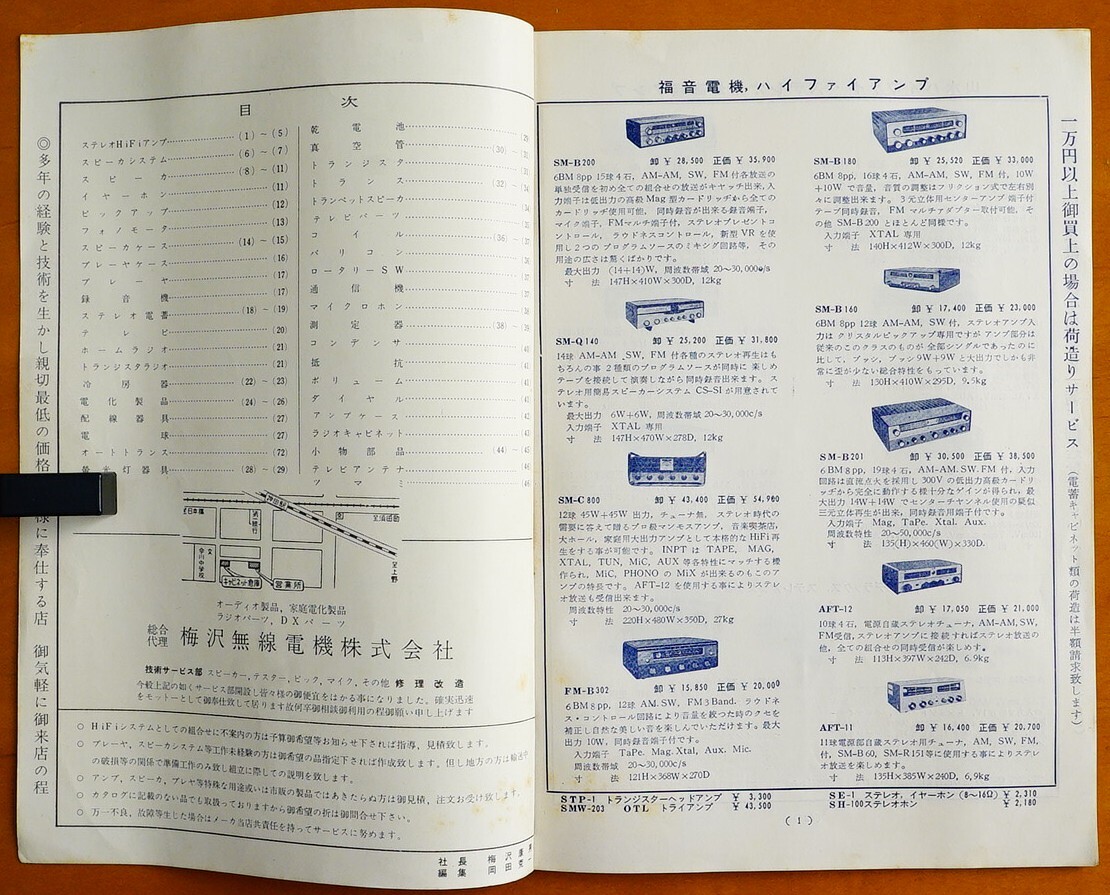 ◎多年の経験と技術を生かし親切最低の価格
様に奉仕する店 御気軽に御来店の程
目次
ステレオHiFiアンプ (1)～(5)
スピーカシステム (6)～(7)
スピーカ (8)～(11)
イヤーホン (11)
ピックアップ (12)
フォノモータ (13)
スピーカケース (14)～(15)
プレーヤケース (16)
プレーヤ (17)
録音機 (17)
ステレオ電蓄 (18)～(19)
テレビ (20)
ホームラジオ (21)
トランジスタラジオ (21)
冷房器 (22)～(23)
電化製品 (24)～(26)
配線器具 (27)
電球 (27)
オートトランス (72)
螢光灯器具 (28)～(29)
乾電池
真空管 (30)
トランジスタ
トランス (32)
トランペットスピーカ
テレビパーツ
コイル (36)
バリコン
ロータリーSW
通信機
マイクロホン
測定器 (38)
コンデンサ
抵抗
ボリューム
ダイヤル
アンプケース
ラジオキャビネット
小物部品 (44)
テレビアンテナ
ツマミ
至日本橋
神田駅
至須田町
至上野
キャビネット倉庫
営業所
オーディオ製品，家庭電化製品
ラジオパーツ，DXパーツ
総合代理 梅沢無線電機株式会社
技術サービス部 スピーカー，テスター，ピック，マイク，その他 修理 改造
今般上記の如くサービス部開設し皆々様の御便宜をはかる事になりました．確実迅速
をモットーとして御奉仕致して居ります故何卒御相談御利用の程御願い申し上げます
○ HiFiシステムとしての組合せに不案内の方は予算御希望等お知らせ下されば指導，見積致します．
○ プレーヤ，スピーカシステム等工作未経験の方は御希望の品指定下されば作成致します．但し地方の方は輸送中
の破損等の関係で準備工作のみ致し組立に際しての説明を致します．
○ アンプ，スピーカ，プレヤ等特殊な用途或いは市販の製品ではあきたらぬ方は御見積，注文お受け致します．
○ カタログに記載のない品でも取扱っておりますから御希望の折は御問合せ下い．
○ 万一不良，故障等生じた場合はメーカ当店共責任を持ってサービスに努めます．
社長 梅沢
編集 岡田
福音電機，ハイファイアンプ
SM-B200 卸 ￥28,500 正価 ￥35,900
6BM 8pp 15球4石，AM-AM，SW，FM付各放送の
単独受信を初め全ての組合せの放送がキャッチ出来，入
力端子は低出力の高級Mag型カードリッヂから全ての
カードリッヂ使用可能，同時録音が出来る録音端子，
マイク端子，FMマルチ端子付，ステレオプレゼントコ
ントロール，ラウドネスコントロール，新型VRを使
用し2つのプログラムソースのミキング回路等，その
用途の広さは驚くばかりです．
最大出力 (14+14)W，周波数帯域 20～30,000c/s
寸法 147H×410W×300D，12kg
SM-Q140 卸 ￥25,200 正価 ￥31,800
14球 AM-AM，SW，FM付各種のステレオ再生はも
ちろんの事2種類のプログラムソースが同時に楽しめ
テープを接続して演奏しながら同時録音出来ます．ス
テレオ用簡易スピーカーシステムCS-SIが用意されて
います．
最大出力 6W+6W，周波数帯域 20～30,000c/s
入力端子 XTAL専用
寸法 147H×470W×278D，12kg
SM-C800 卸 ￥43,400 正価 ￥54,980
12球 45W+45W出力，チューナ無，ステレオ時代の
需要に答えて贈るプロ級マンモスアンプ，音楽喫茶店，
大ホール，家庭用大出力アンプとして本格的なHiFi再
生をする事が可能です． INPTはTAPE，MAG，
XTAL，TUN，MiC，AUX等各特性にマッチする様
作られ，MiC，PHONOのMiXが出来るのもこのア
ンプの特長です． AFT-12を使用する事によりステレ
オ放送も受信出来ます．
周波数特性 20～30,000c/s
寸法 220H×480W×350D，27kg
FM-B302 卸 ￥15,850 正価 ￥20,000
6BM 8pp，12球 AM.SW，FM3Band． ラウドネ
ス・コントロール回路により音量を絞った時のクセを
補正し自然な美しい音を楽しんでいただけます．最大
出力10W，同時録音端子付です．
入力端子 TaPe. Mag. Xtal, Aux. Mic.
周波数帯域 20～30,000c/s
寸法 121H×368W×270D
SM-B180 卸 ￥25,520 正価 ￥33,000
6BM 8pp，16球4石，AM-AM，SW，FM付，10W
+10Wで音量，音質の調整はフリクション式で左右別
々に調整出来ます．3元立体用センターアンプ端子付
テープ同時録音，FMマルチアダプター取付可能，そ
の他SM-B200とほとんど同様です．
入力端子 XTAL専用
寸法 140H×412W×300D，12kg
SM-B160 卸 ￥17,400 正価 ￥23,000
6BM 8pp 12球 AM-AM，SW付，ステレオアンプ入
力はクリスタルピックアップ専用ですがアンプ部分は
従来のこのクラスのものが全部シングルであったのに
比して，プッシ，プッシ9W+9Wと大出力でしかも非
常に歪が少ない総合特性をもっています．
寸法 130H×410W×295D，9.5kg
SM-B201 卸 ￥30,500 ￥38,500
6BM 8pp，19球4石，AM-AM.SW.FM付，入力
回路は直流点火を採用し300Vの低出力高級カードリ
ッヂから完全に動作する様十分なゲインが得られ，最
大出力14W+14Wでセンターチャンネル使用の疑似
三元立体再生が出来，同時録音用端子付です．
入力端子 Mag, TaPe. Xtal. Aux.
周波数特性 20～50,000c/s
寸法 135(H)×460(W)×330D.
AFT-12 卸 ￥17,050 正価 ￥21,000
10球4石，電源自蔵ステレオチューナ，AM-AM，SW，
FM受信，ステレオアンプに接続すればステレオ放送の
他，全ての組合せの同時受信が楽しめす．
寸法 113H×397W×242D，6.9kg
AFT-11 卸 ￥16,400 ￥20,700
11球電源部自蔵ステレオ用チューナ，AM，SW，FM，
付，SM-B60，SM-R151等に使用する事によりステレ
オ放送を楽しめます．
寸法 135H×385W×240D，6,9kg
STP-1 トランジスターヘッドアンプ ￥3,300
SMW-203 OTL トライアンプ ￥43,500
SE-1 ステレオ，イヤーホン(8～16Ω) ￥2,310
SH-100ステレオホン ￥2,180
(1)
一万円以上御買上の場合は荷造りサービス（電蓄キャビネット類の荷造は半額請求致します）